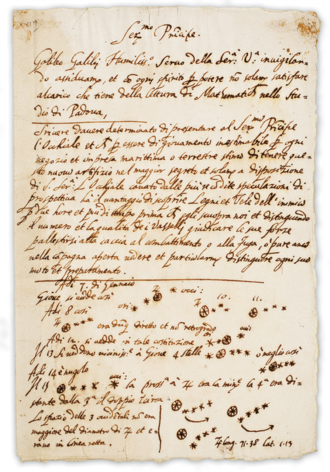 Ser.mo Principe.
Galileo Galilei Humiliss.o Servo della Ser.a V.a invigilan-
do assiduam.te, et con ogni spirito per potere non solam.te satisfare
al carico che tiene della lettura di Matematich. nello Stu-
dio di Padova,
Scrivere d'avere determinato di presentare al Ser.mo Principe
l'Occhiale et per essere di giovamento inestimabile per ogni
negozio et impresa marittima o terrestre stimo di tenere que-
sto nuovo artifizio nel maggior segreto et solam.te a disposizione
di S. Ser.tà L'Occhiale cavato dalle più recondite speculazioni di
prospettiva ha il vantaggio di scoprire Legni et Vele dell'inimico
per due hore et più di tempo prima che egli scuopra noi et distinguendo
il numero et la qualità de i Vasselli giudicare le sue forze
pallestirsi alla caccia al combattimento o alla fuga, o pure anco
nella campagna aperta vedere et particolarm.te distinguere ogni suo
moto et preparamento.
Adi 7. di Gennaio
Giove si vede così
Adi 8 così
era dunq. diretto et non retrogrado
Adi 12. si vedde in tale costituzione
Il 13. si veddono vicinissime à Giove 4 stelle o meglio così
Adi 14 è nugolo
Il 15 la pross.a à ♃ era la min.e la 4.a era di-
stante dalla 3.a il doppio incirca
Lo spazio delle 3 occidentali non era
maggiore del diametro di ♃ et e-
rano in linea retta.
♃ long. 71.38 lat. 1.13